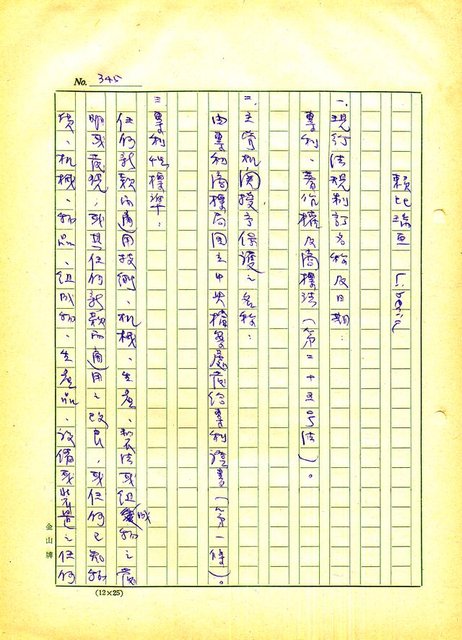 No. 345
賴比瑞亞
一、現行法規制訂名稱及日期：
專利、著作權及商標法（第二十五号法）。
二、主管机関授予保護之名称：
由專利商標局回主中央檔案處發給專利證書（第一條）。
三 專利性標準：
任何新穎而適用技術、机械、生產、製法或組成物之發
明或發現，或其任何新穎而適用之改良，或任何已知物
質、机械、物品、組成物、生產品、設備或裝置之任何
金山牌
(12×25)